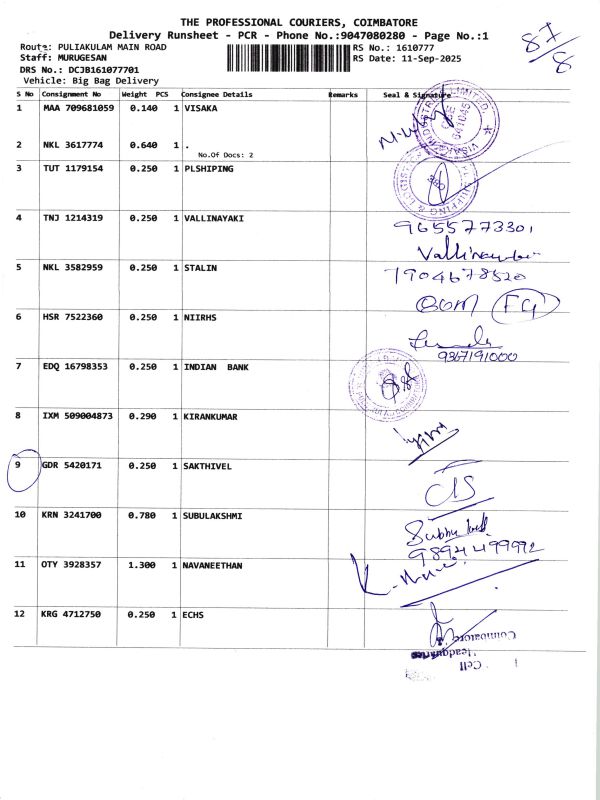 THE PROFESSIONAL COURIERS, COIMBATORE
Delivery Runsheet - PCR - Phone No.:9047080280 - Page No.:1
87/8
Route: PULIAKULAM MAIN ROAD RS No.: 1610777
Staff: MURUGESAN RS Date: 11-Sep-2025
DRS No.: DCJB161077701
Vehicle: Big Bag Delivery
S No Consignment No Weight PCS Consignee Details Remarks Seal & Signature
1 MAA 709681059 0.140 1 VISAKA
2 NKL 3617774 0.640 1 .
No.Of Docs: 2
3 TUT 1179154 0.250 1 PLSHIPING
4 TNJ 1214319 0.250 1 VALLINAYAKI
9655773301
5 NKL 3582959 0.250 1 STALIN
7904678520
6 HSR 7522360 0.250 1 NIIRHS
9367191000
7 EDQ 16798353 0.250 1 INDIAN BANK
8 IXM 509004873 0.290 1 KIRANKUMAR
9 GDR 5420171 0.250 1 SAKTHIVEL
10 KRN 3241700 0.780 1 SUBULAKSHMI
9894499992
11 OTY 3928357 1.300 1 NAVANEETHAN
12 KRG 4712750 0.250 1 ECHS
Coimbatore
Headquarters
Cell